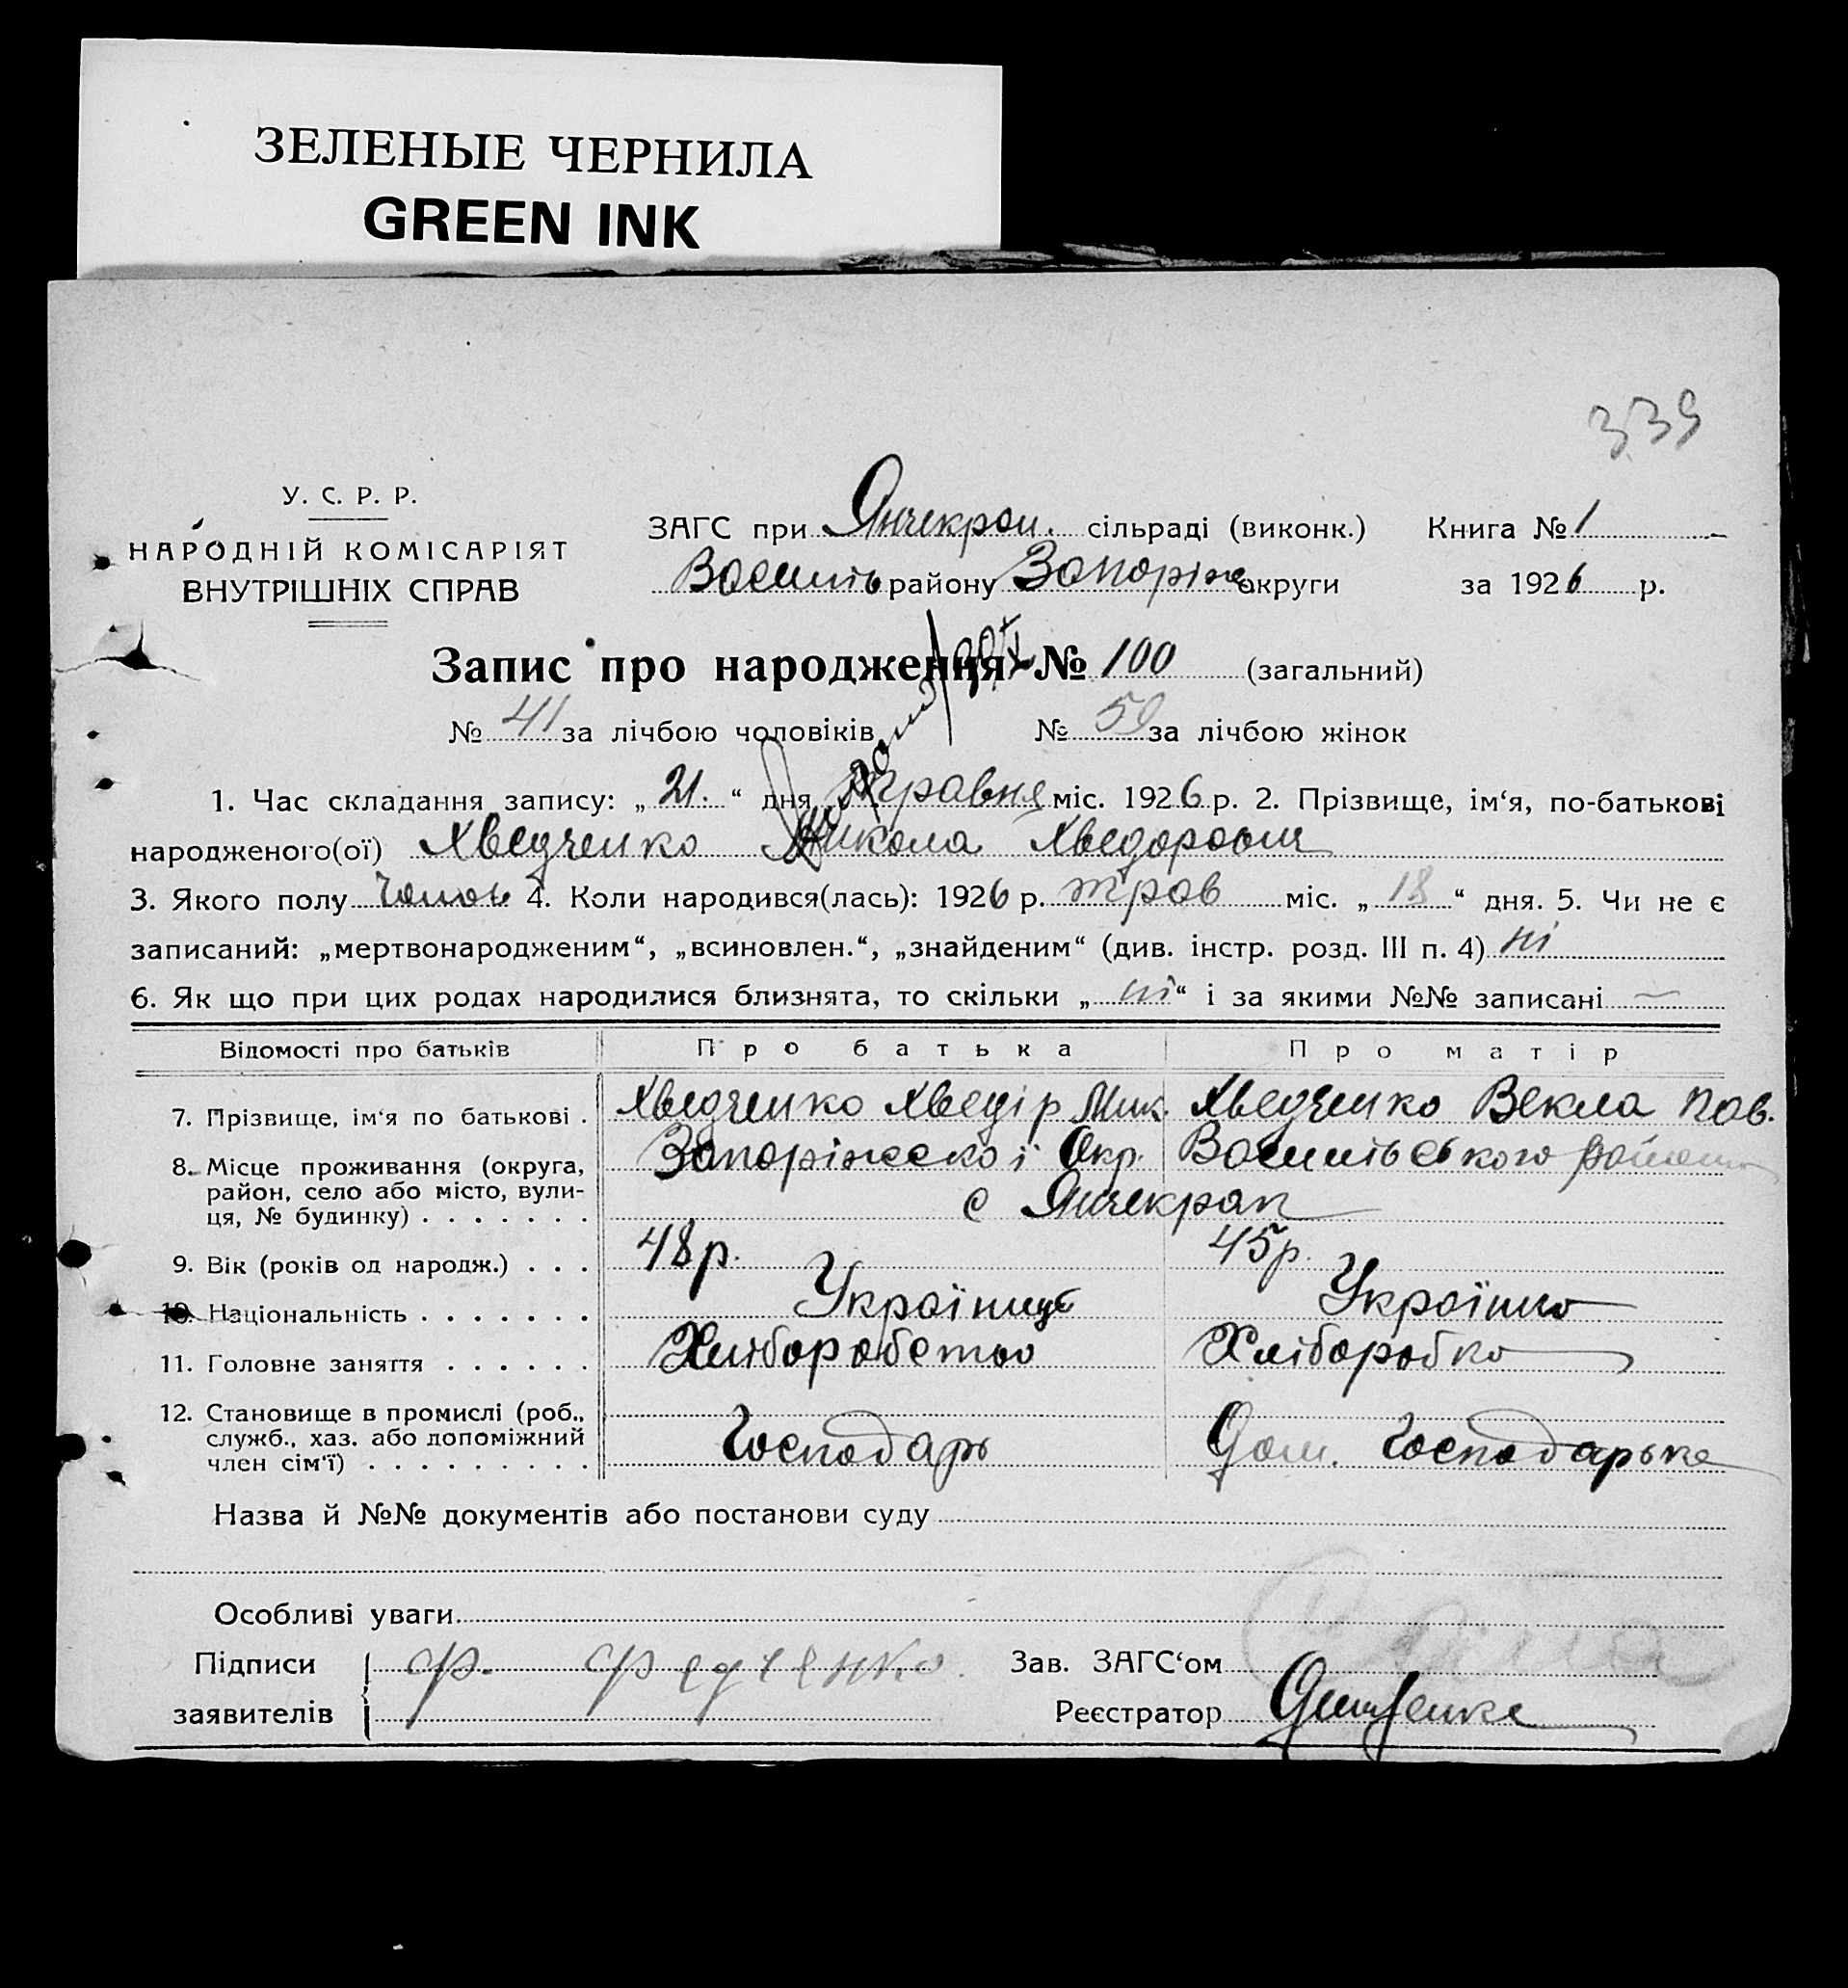 ЗЕЛЕНЫЕ ЧЕРНИЛА
GREEN INK
339
У. С. Р. Р.
НАРОДНІЙ КОМІСАРІЯТ
ВНУТРІШНІХ СПРАВ
ЗАГС при Янчекрак. сільраді (виконк.) Книга № 1
Василів району Запоріж округи за 1926 р.
Запис про народження № 100 (загальний)
№ 41 за лічбою чоловіків № 59 за лічбою жінок
1. Час складання запису: „ 21. “ дня травня міс. 1926 р. 2. Прізвище, ім‘я, по-батькові
народженого(ої) Хведченко Микола Хведорович
3. Якого полу чолов 4. Коли народився(лась): 1926 р. трав міс. „ 18 “ дня. 5. Чи не є
записаний: „мертвонародженим“, „всиновлен.“, „знайденим“ (див. інстр. розд. III п. 4) ні
6. Як що при цих родах народилися близнята, то скільки „ ні “ і за якими №№ записані —
Відомості про батьків Про батька Про матір
7. Прізвище, ім‘я по батькові . Хведченко Хведір Мик. Хведченко Векла Пав.
8. Місце проживання (округа, район, село або місто, вулиця, № будинку) . . . . . . . Запоріжської Окр. Василівського району
с Янчекрак
9. Вік (років од народж.) . . . 48 р. 45 р.
10. Національність . . . . . . . Українець Українка
11. Головне заняття . . . . . . Хліборобство Хліборобка
12. Становище в промислі (роб., служб., хаз. або допоміжний член сім‘ї) . . . . . . . . . Господарь Дом. Господарька
Назва й №№ документів або постанови суду
Особливі уваги
Підписи заявителів Ф. Федченко. Зав. ЗАГС‘ом
Реєстратор